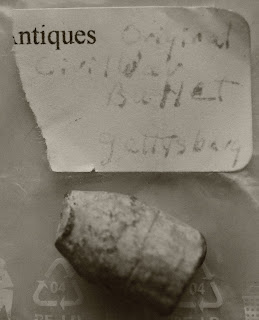 Antiques Original
Civil War
Bullet
gettysburg
04
04